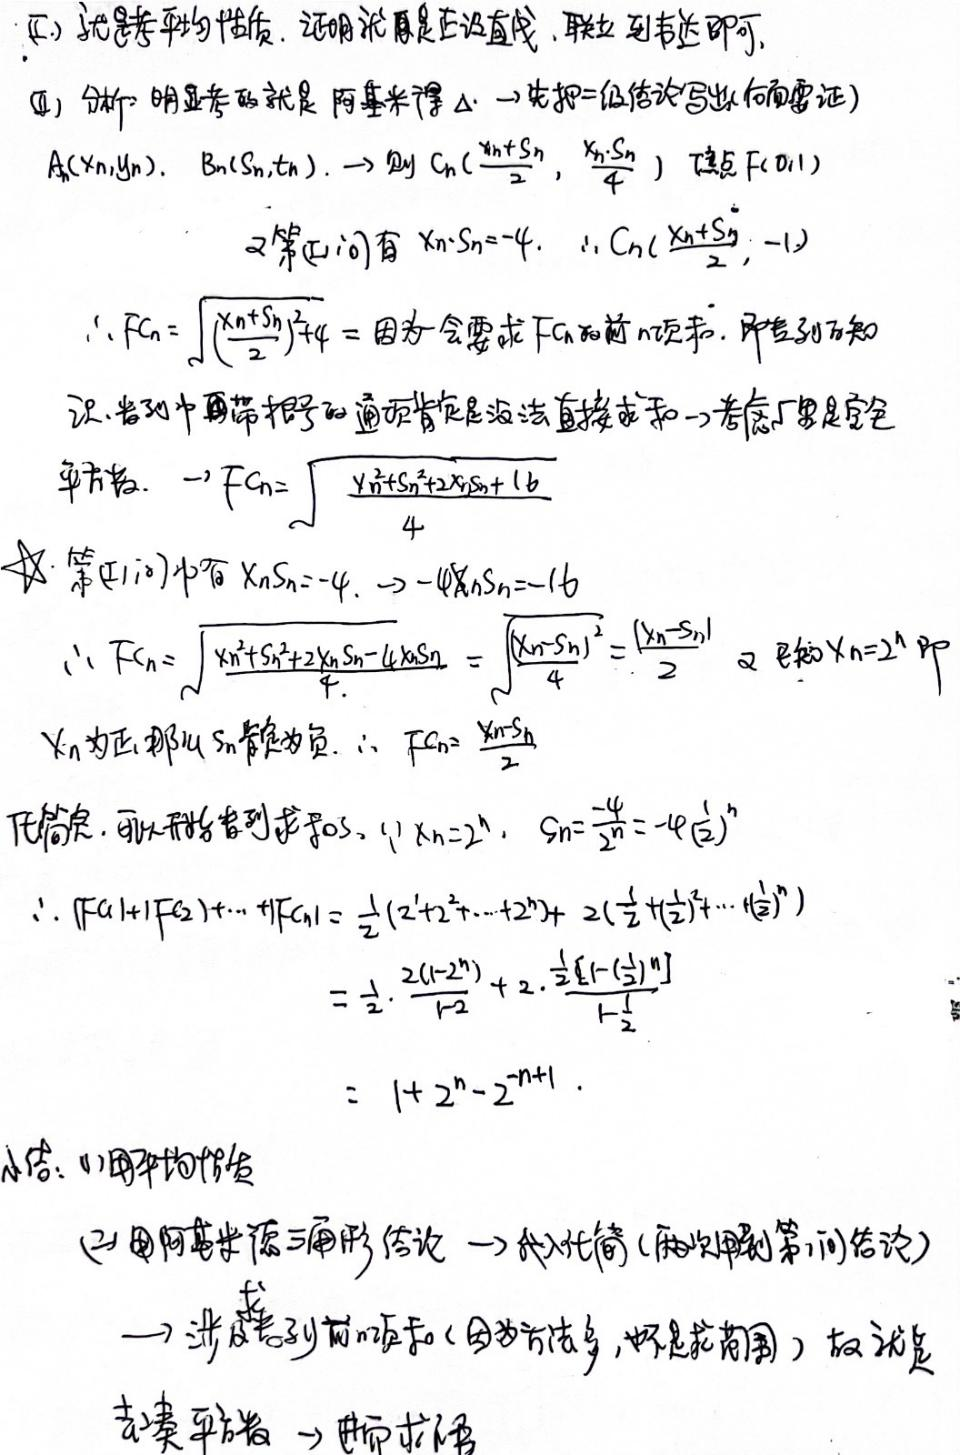 (I) 就是考平均性质. 证明就是正设直线、联立到韦达即可.
(II) 分析: 明显考的就是阿基米德△. → 先把二级结论写出(后面要证)
An(xn,yn). Bn(Sn,tn). → 则 Cn(\frac{xn+Sn}{2}, \frac{xn·Sn}{4}) 焦点F(0,1)
又第(I)问有 xn·Sn=-4. ∴ Cn(\frac{xn+Sn}{2}, -1)
∴ FCn = \sqrt{(\frac{xn+Sn}{2})^2+4} = 因为会要求FCn的前n项和. 即考到的知
识. 数列中带根号的通项肯定是没法直接求和 → 考虑√里是完全
平方数. → FCn = \sqrt{\frac{xn^2+Sn^2+2xnSn+16}{4}}
☆. 第(I)问中有 xnSn=-4. → -4xnSn=-16
∴ FCn = \sqrt{\frac{xn^2+Sn^2+2xnSn-4xnSn}{4}} = \sqrt{\frac{(xn-Sn)^2}{4}} = \frac{|xn-Sn|}{2} 又已知xn=2^n 即
xn为正, 那么Sn肯定为负. ∴ FCn = \frac{xn-Sn}{2}
化简完. 可以开始数列求和了. ∵ xn=2^n, Sn=\frac{-4}{2^n}=-4(\frac{1}{2})^n
∴. |FC1|+|FC2|+…+|FCn| = \frac{1}{2}(2^1+2^2+…+2^n)+ 2(\frac{1}{2}+(\frac{1}{2})^2+…+(\frac{1}{2})^n)
= \frac{1}{2}·\frac{2(1-2^n)}{1-2} + 2·\frac{\frac{1}{2}[1-(\frac{1}{2})^n]}{1-\frac{1}{2}}
= 1+2^n-2^{-n+1}.
小结: (1)用平均性质
(2) 用阿基米德三角形结论 → 代入化简(两次用到第1问结论)
→ 涉及求数列前n项和(因为方法多,也不是求范围) 故就是
去凑平方数 → 进而求